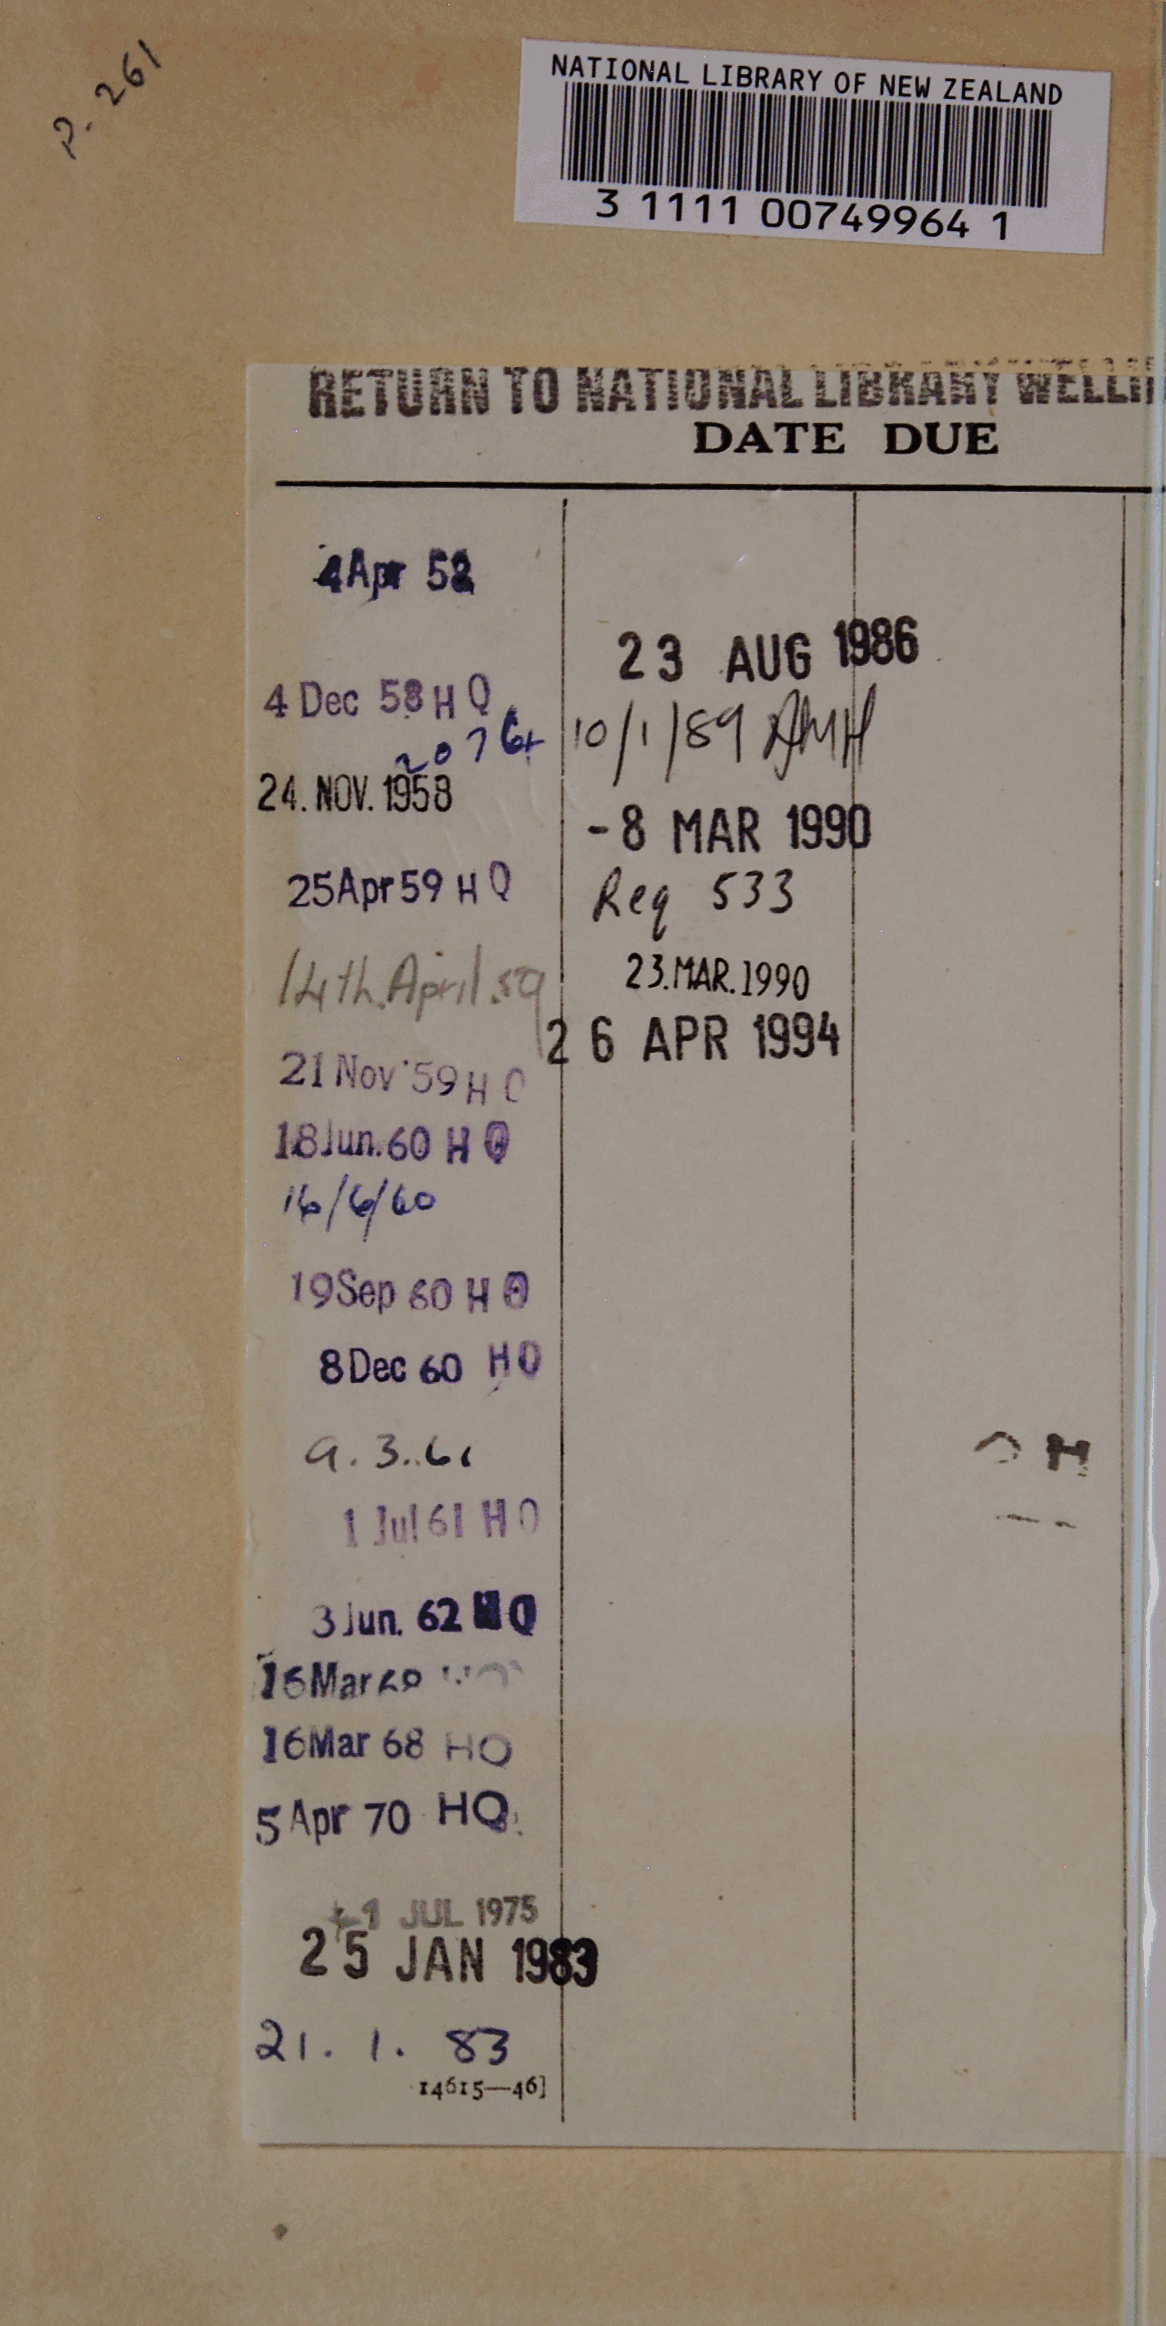 P. 261
NATIONAL LIBRARY OF NEW ZEALAND
3 1111 00749964 1
RETURN TO NATIONAL LIBRARY WELLI
DATE DUE
4 Apr 52
4 Dec 58 H Q
2076+
24. NOV. 1958
25 Apr 59 H Q
14th. April. 59
21 Nov 59 H Q
18 Jun. 60 H Q
16/6/60
19 Sep 60 H Q
8 Dec 60 HQ
9.3.61
1 Jul 61 H Q
3 Jun. 62 HQ
16 Mar 68
16 Mar 68 HQ
5 Apr 70 HQ
1 JUL 1975
25 JAN 1983
21. 1. 83
14615—46]
23 AUG 1986
10/1/89 AMH
-8 MAR 1990
Req 533
23. MAR. 1990
26 APR 1994